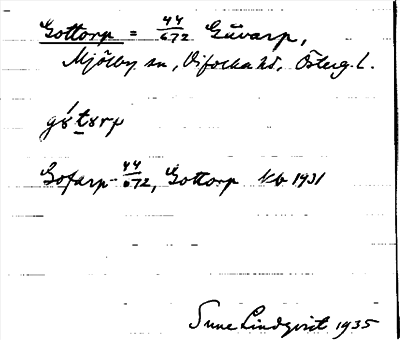 Gottorp = 44/672 Güvarp,
Mjölby sn, Vifolka hd, Österg. l.
gótorp
Gofarp 44/672, Gottorp kb 1931
Sune Lindqvist 1935